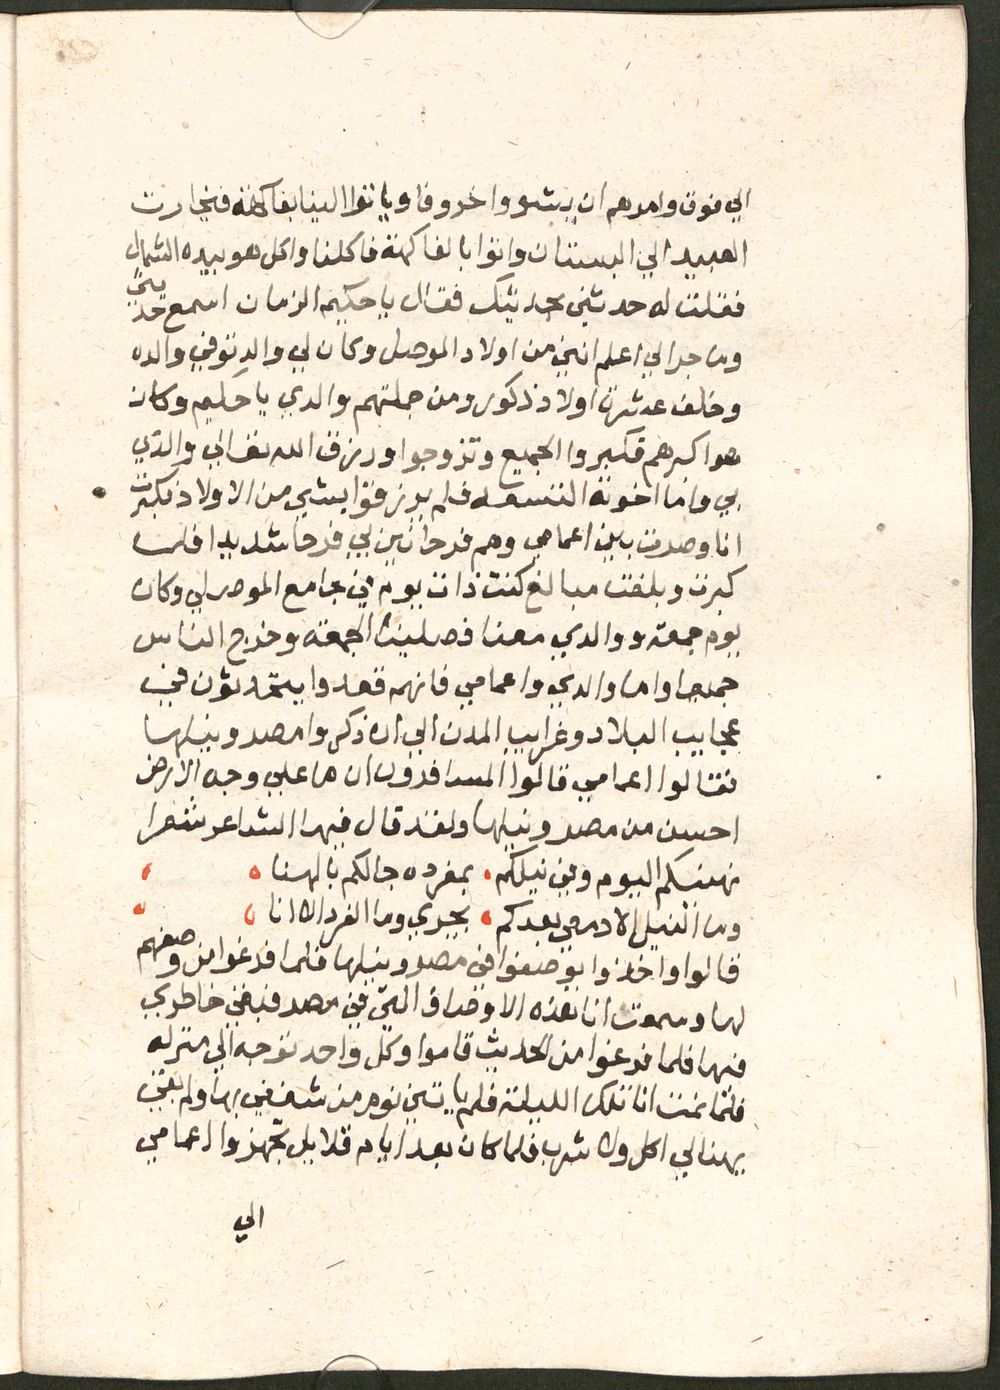 الي فوق وامرهم ان يشووا خروفا وياتوا الينا بفاكهة فتجارت
العبيد الي البستان واتوا بالفاكهة فاكلنا واكل هو بيده الشمال
فقلت له حدثني بحديثك فقال يا حكيم الزمان اسمع حديثي
وما جرالي اعلم انني من اولاد الموصل وكان لي والد توفي والده
وخلف عشرة اولاد ذكور ومن جملتهم والدي يا حكيم وكان
هو اكبرهم فكبروا الجميع وتزوجوا ورزق الله تعالي والدي
بي واما اخوته التسعه فلم يرزقوا بشي من الاولاد فكبرت
انا وصرت بين اعمامي وهم فرحانين بي فرحا شديدا فلما
كبرت وبلغت مبالغ كنت ذات يوم في جامع الموصل وكان
يوم جمعة ووالدي معنا فصلينا الجمعة وخرج الناس
جميعا واما والدي واعمامي فانهم قعدوا يتحدثون في
عجايب البلاد وغرايب المدن الي ان ذكروا مصر ونيلها
فقالوا اعمامي قالوا المسافرون ان ما علي وجه الارض
احسن من مصر ونيلها ولقد قال فيها الشاعر شعرا
نهنيكم اليوم وفي نيلكم بمفرده جالكم بالهنا
وما النيل الا دمعي بعدكم يجري وما الفرد الا انا
قالوا واخذوا يوصفوا في مصر ونيلها فلما فرغوا من وصفهم
لها وسمعت انا بهذه الاوصاف التي في مصر فبقي خاطري
فيها فلما فرغوا من الحديث قاموا وكل واحد توجه الي منزله
فلما نمت انا تلك الليلة فلم ياتيني نوم من شغفي بها ولم بقي
يهنالي اكل ولا شرب فلما كان بعد ايام قلايل تجهزوا اعمامي
الي